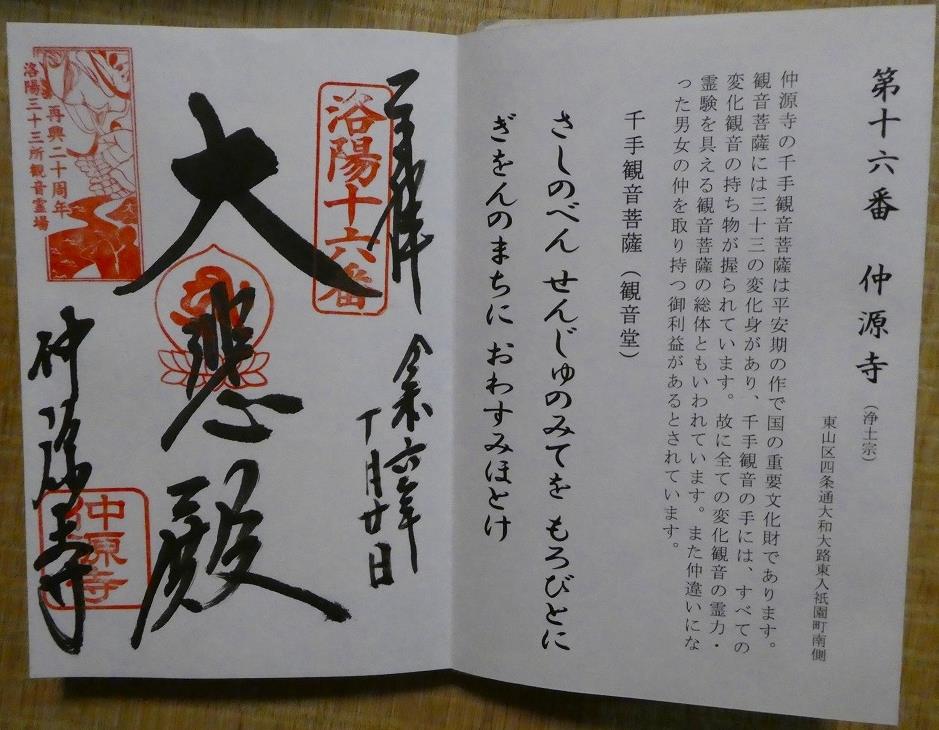 第十六番 仲源寺(浄土宗)
東山区四条通大和大路東入祇園町南側
仲源寺の千手観音菩薩は平安期の作で国の重要文化財であります。
観音菩薩には三十三の変化身があり、千手観音の手には、すべての
変化観音の持ち物が握られています。故に全ての変化観音の霊力・
霊験を具える観音菩薩の総体ともいわれています。また仲違いにな
った男女の仲を取り持つ御利益があるとされています。
千手観音菩薩(観音堂)
さしのべん せんじゅのみてを もろびとに
ぎをんのまちに おわすみほとけ
奉拝
洛陽十六番
令和六年
月廿日
大悲殿
再興二十周年
洛陽三十三所観音霊場
仲源寺
仲源寺